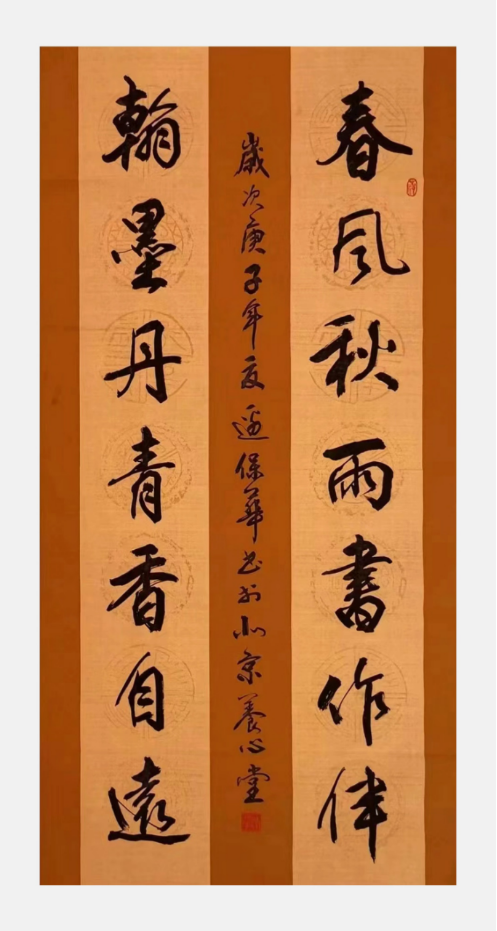 春风秋雨書作伴
翰墨丹青香自遠
歲次庚子年夏邊保華书於北京養心堂